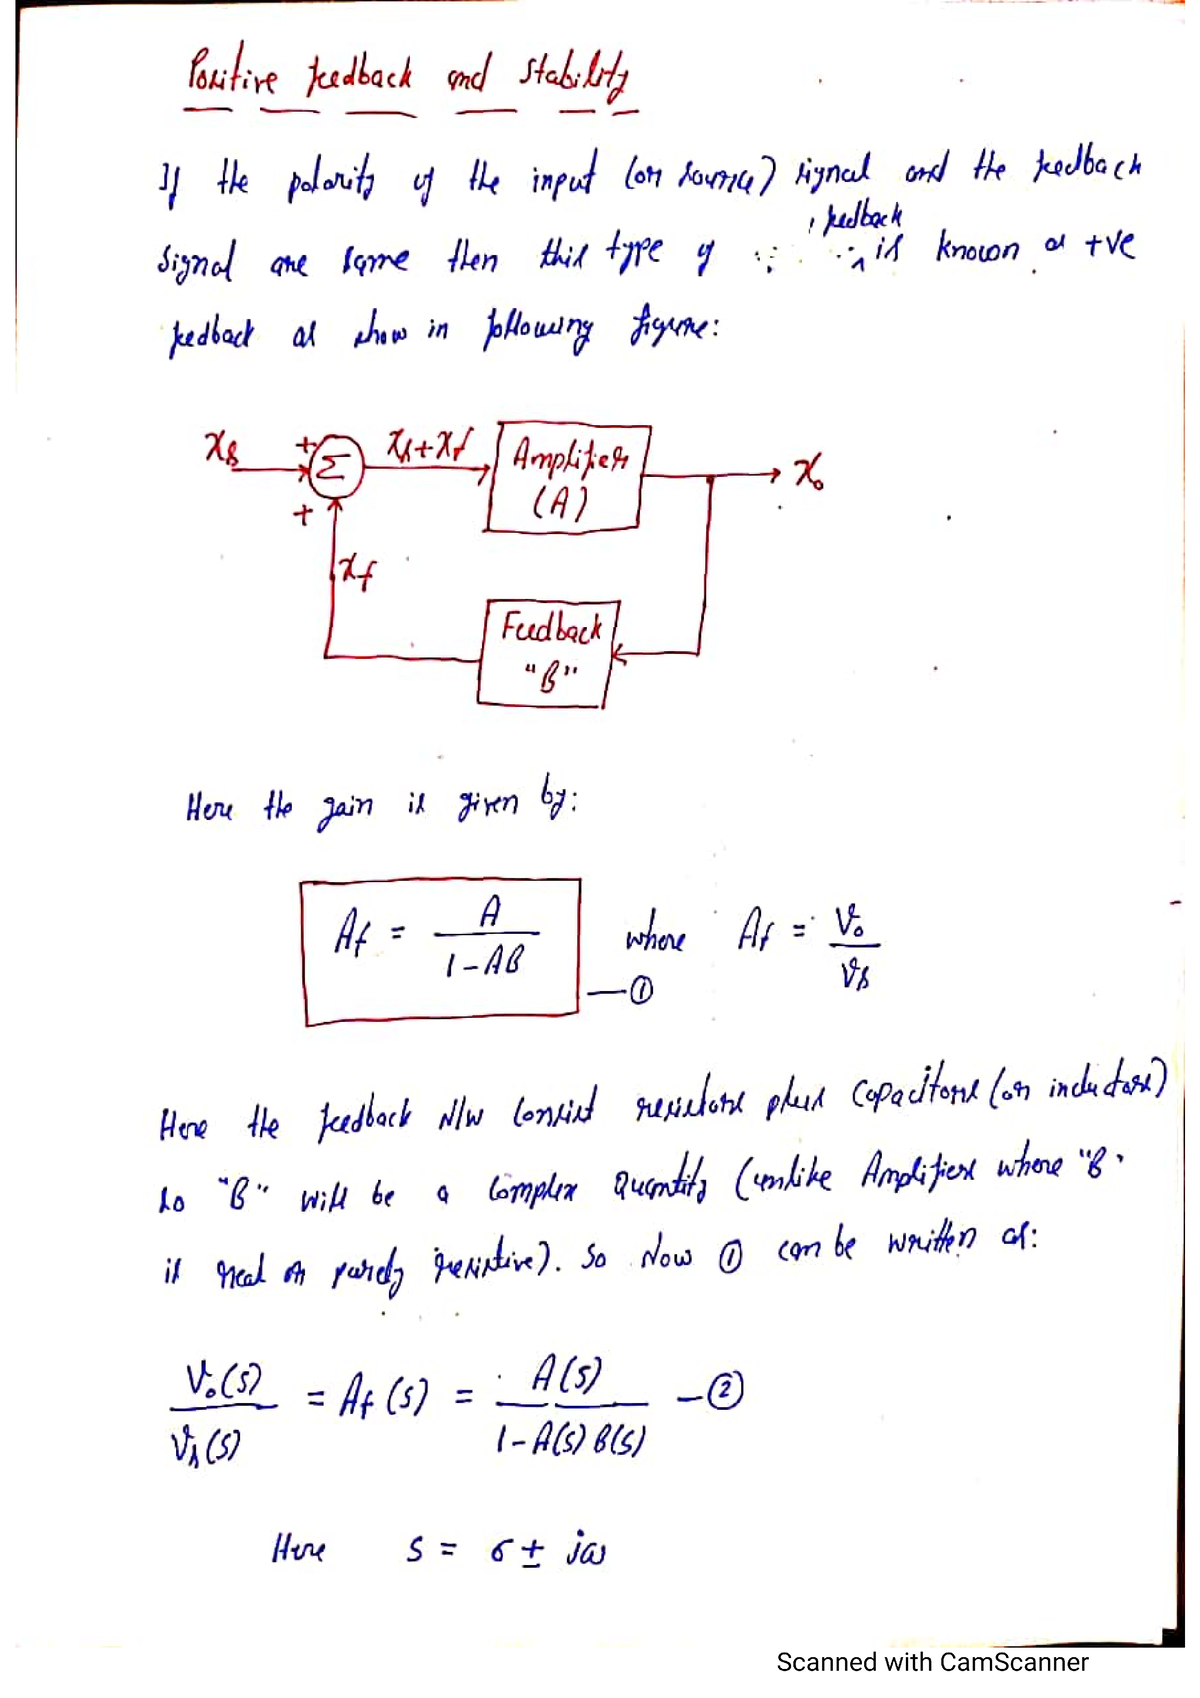 Positive feedback and stability
If the polarity of the input (or source) signal and the feedback
feedback
Signal are same then this type of is known as +ve
feedback as show in following figure:
Xs + Σ Xs+Xf Amplifier (A) Xo
+
Xf
Feedback
"B"
Here the gain is given by:
Af = A / (1-AB) —① where Af = Vo / Vs
Here the feedback N/W consist resistors plus capacitors (or inductors)
so "B" will be a complex quantity (unlike Amplifiers where "B"
is real or purely resistive). So Now ① can be written as:
Vo(s) / Vs(s) = Af(s) = A(s) / (1-A(s) B(s)) —②
Here S = σ ± jω
Scanned with CamScanner